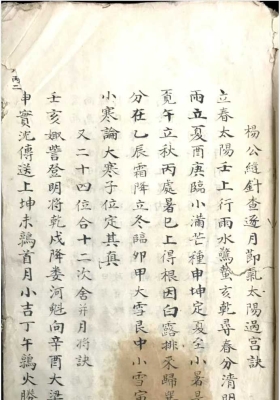 楊公縫針查逐月節氣太陽過宮訣
立春太陽壬上行雨水驚蟄亥乾尋春分清明
雨立夏酉庚臨小滿芒種申坤定夏至小暑是
覓午立秋丙處暑巳上得根因白露排來歸
分在乙辰霜降立冬臨卯甲大雪艮中小雪寅
小寒論大寒子位定其真
又二十四位合十二次舍并月將訣
壬亥娵訾登明將乾戌降婁河魁向辛酉大梁
申實沈傳送上坤未鶉首月小吉丁午鶉火勝